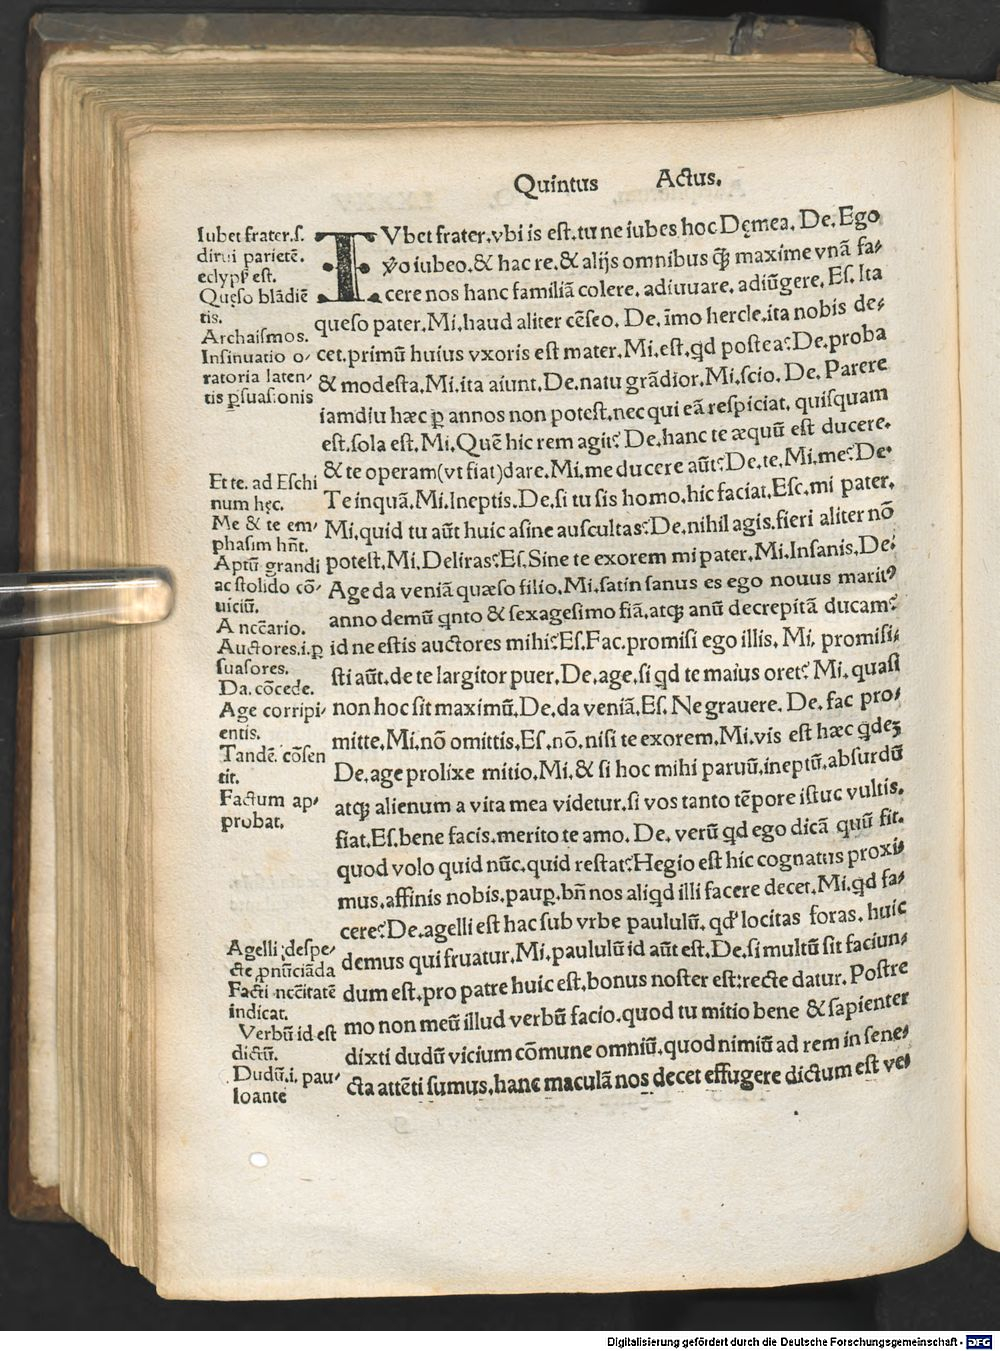 Quintus Actus.
IVbet frater.vbi is est.tu ne iubes hoc Dęmea. De. Ego
ꝟo iubeo.& hac re.& alijs omnibus ꝙ̃ maxime vnã fa⸗
cere nos hanc familiã colere. adiuuare. adiũgere. Es. Ita
queso pater.Mi.haud aliter cẽseo. De. ĩmo hercle.ita nobis de⸗
cet.primũ huius vxoris est mater.Mi.est.qd postea?De.proba
& modesta.Mi.ita aiunt.De.natu grãdior.Mi.scio. De. Parere
iamdiu hæc ꝑ annos non potest.nec qui eã respiciat. quisquam
est.sola est. Mi.Quẽ hic rem agit? De.hanc te æquũ est ducere.
& te operam(vt fiat)dare.Mi.me ducere aũt?De.te.Mi.me?De.
Te inquã.Mi.Ineptis.De.si tu sis homo.hic faciat.Esc.mi pater.
Mi.quid tu aũt huic asine auscultas?De.nihil agis.fieri aliter nõ
potest.Mi.Deliras?Es.Sine te exorem mi pater.Mi.Insanis.De.
Age da veniã quæso filio.Mi.satin sanus es ego nouus maritꝰ
anno demũ qnto & sexagesimo fiã.atqꝫ anũ decrepitã ducam?
id ne estis auctores mihi?Es.Fac.promisi ego illis. Mi. promisi⸗
sti aũt.de te largitor puer.De.age.si qd te maius oret? Mi.quasi
non hoc sit maximũ.De.da veniã.Es. Ne grauere. De. fac pro⸗
mitte.Mi.nõ omittis.Es.nõ.nisi te exorem.Mi.vis est hæc qdeꝫ
De.age prolixe mitio.Mi.& si hoc mihi paruũ.ineptũ.absurdũ
atqꝫ alienum a vita mea videtur.si vos tanto tẽpore istuc vultis.
fiat.Es.bene facis.merito te amo. De. verũ qd ego dicã quũ fit.
quod volo quid nũc.quid restat?Hegio est hic cognatus proxi⸗
mus.affinis nobis.pauꝑ.bñ nos aliqd illi facere decet.Mi.qd fa⸗
cere?De.agelli est hac sub vrbe paululũ. qd locitas foras. huic
demus qui fruatur.Mi.paululũ id aũt est.De.si multũ sit faciun⸗
dum est.pro patre huic est.bonus noster est:recte datur. Postre
mo non meũ illud verbũ facio.quod tu mitio bene & sapienter
dixti dudũ vicium cõmune omniũ.quod nimiũ ad rem in sene⸗
cta attẽti sumus.hanc maculã nos decet effugere dictum est ve⸗
Iubet frater.s.
dirui parietẽ.
eclypsꝭ est.
Quęso blãdiẽ
tis.
Archaismos.
Insinuatio o⸗
ratoria laten⸗
tis ꝑsuasionis
Et te. ad Eschi
num hęc.
Me & te em⸗
phasim hñt.
Aptũ grandi
ac stolido cõ⸗
uiciũ.
A ncc̃ario.
Auctores.i.ꝑ
suasores.
Da. cõcede.
Age corripi⸗
entis.
Tandẽ. cõsen
tit.
Factum ap⸗
probat.
Agelli:despe⸗
cte ꝓnũciãda
Facti ncc̃itatẽ
indicat.
Verbũ id est
dictũ.
Dudũ.i. pau⸗
loante
Digitalisierung gefördert durch die Deutsche Forschungsgemeinschaft - DFG